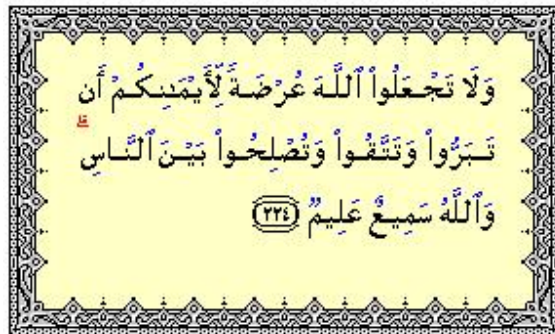 وَلَا تَجْعَلُوا۟ ٱللَّهَ عُرْضَةً لِّأَيْمَـٰنِكُمْ أَن
تَبَرُّوا۟ وَتَتَّقُوا۟ وَتُصْلِحُوا۟ بَيْنَ ٱلنَّاسِ ۗ
وَٱللَّهُ سَمِيعٌ عَلِيمٌ ﴿٢٢٤﴾